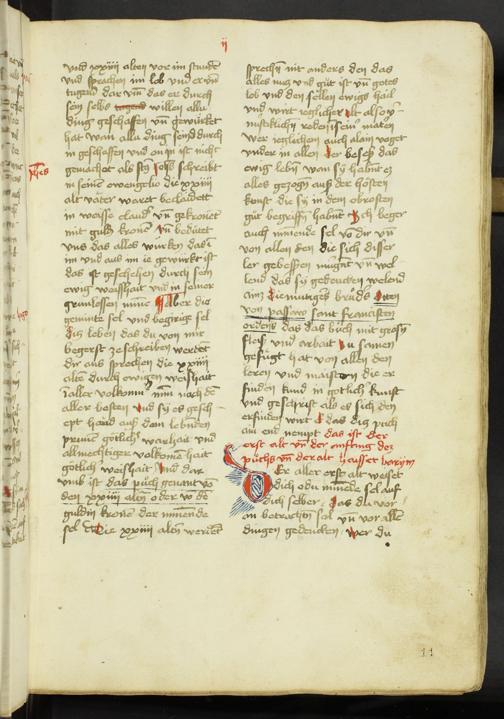 ij
vnd xxiiij alten vor im stand
vnd sprachen im lob vnd er vnd
tugend dar vm̄ das er durch
sein selbs tugend willen alle
ding geschaffen vn̄ gewürket
hat wan alle ding seind durch
in geschaffen vnd on in ist nicht
gemachet als st Johēs schreibt
Johēs
in seine ewangelio die xxiiij
alt vater waret beclaidett
in weisse claid vn̄ gekronet
mit guld krone vn bedutet
vns das alles würken das
im vnd aus im ie gewürkt ist
das ist geschehen durch sein
ewig weishait vnd in seiner
grundlosen minne Aber die
geminte sel vnd begirige sel
Die leben das du von mir
begerst ze schreiben werdet
dir aus sprochen die xxiiij
alte durch ewigen weishait
aller volkomn nach de
aller besten vnd sy es gesch
ept hand aus dem lebenden
prunne götlich warhait vnd
allmechtiger volkome hait
götlich weishait vnd dar
vmb ist das püch genant vo
den xxiiij alten oder vo de
guldin krone der minende
sel Die xxiiij alten werdet
sprechn̄ nit anders den das
alles nutz vnd güt ist vn̄ gotes
lob vnd den sellen ewigs hail
vnd wirt ieglicher alt also
mustiklich reden in sein maten
wer ieglichen auch alain voget
vnder in allen der beseß das
ewig lebn̄ wan sy habnt es
alles gezogn aus der hosten
kunst die sy in dem obrosten
güt begriffn habnt Ich beger
auch minende sel vo dir vn̄
von allen den die sich disser
ler gebessen mügnt vn̄ wel
lend das sy gedencken welend
ainz diemütiges brüds Otten
von passow sant francisten
ordens das das büch mit grosz
fleis vnd arbait zu samen
gefügt hat von allen den
leren vnd maistern die er
finden kund in gotlich kunst
vnd geschrift als es sich den
erfinden wirt das dis püch
ain end nempt das ist der
erst alt vn̄ der anfang dez
püchs vn̄ der alt haisset
Der aller erst alt weiset
dich o du minende sel auf
dich selber das du vor
an betrachtn̄ sol vn̄ vor alle
dingen gedencken wer du
11